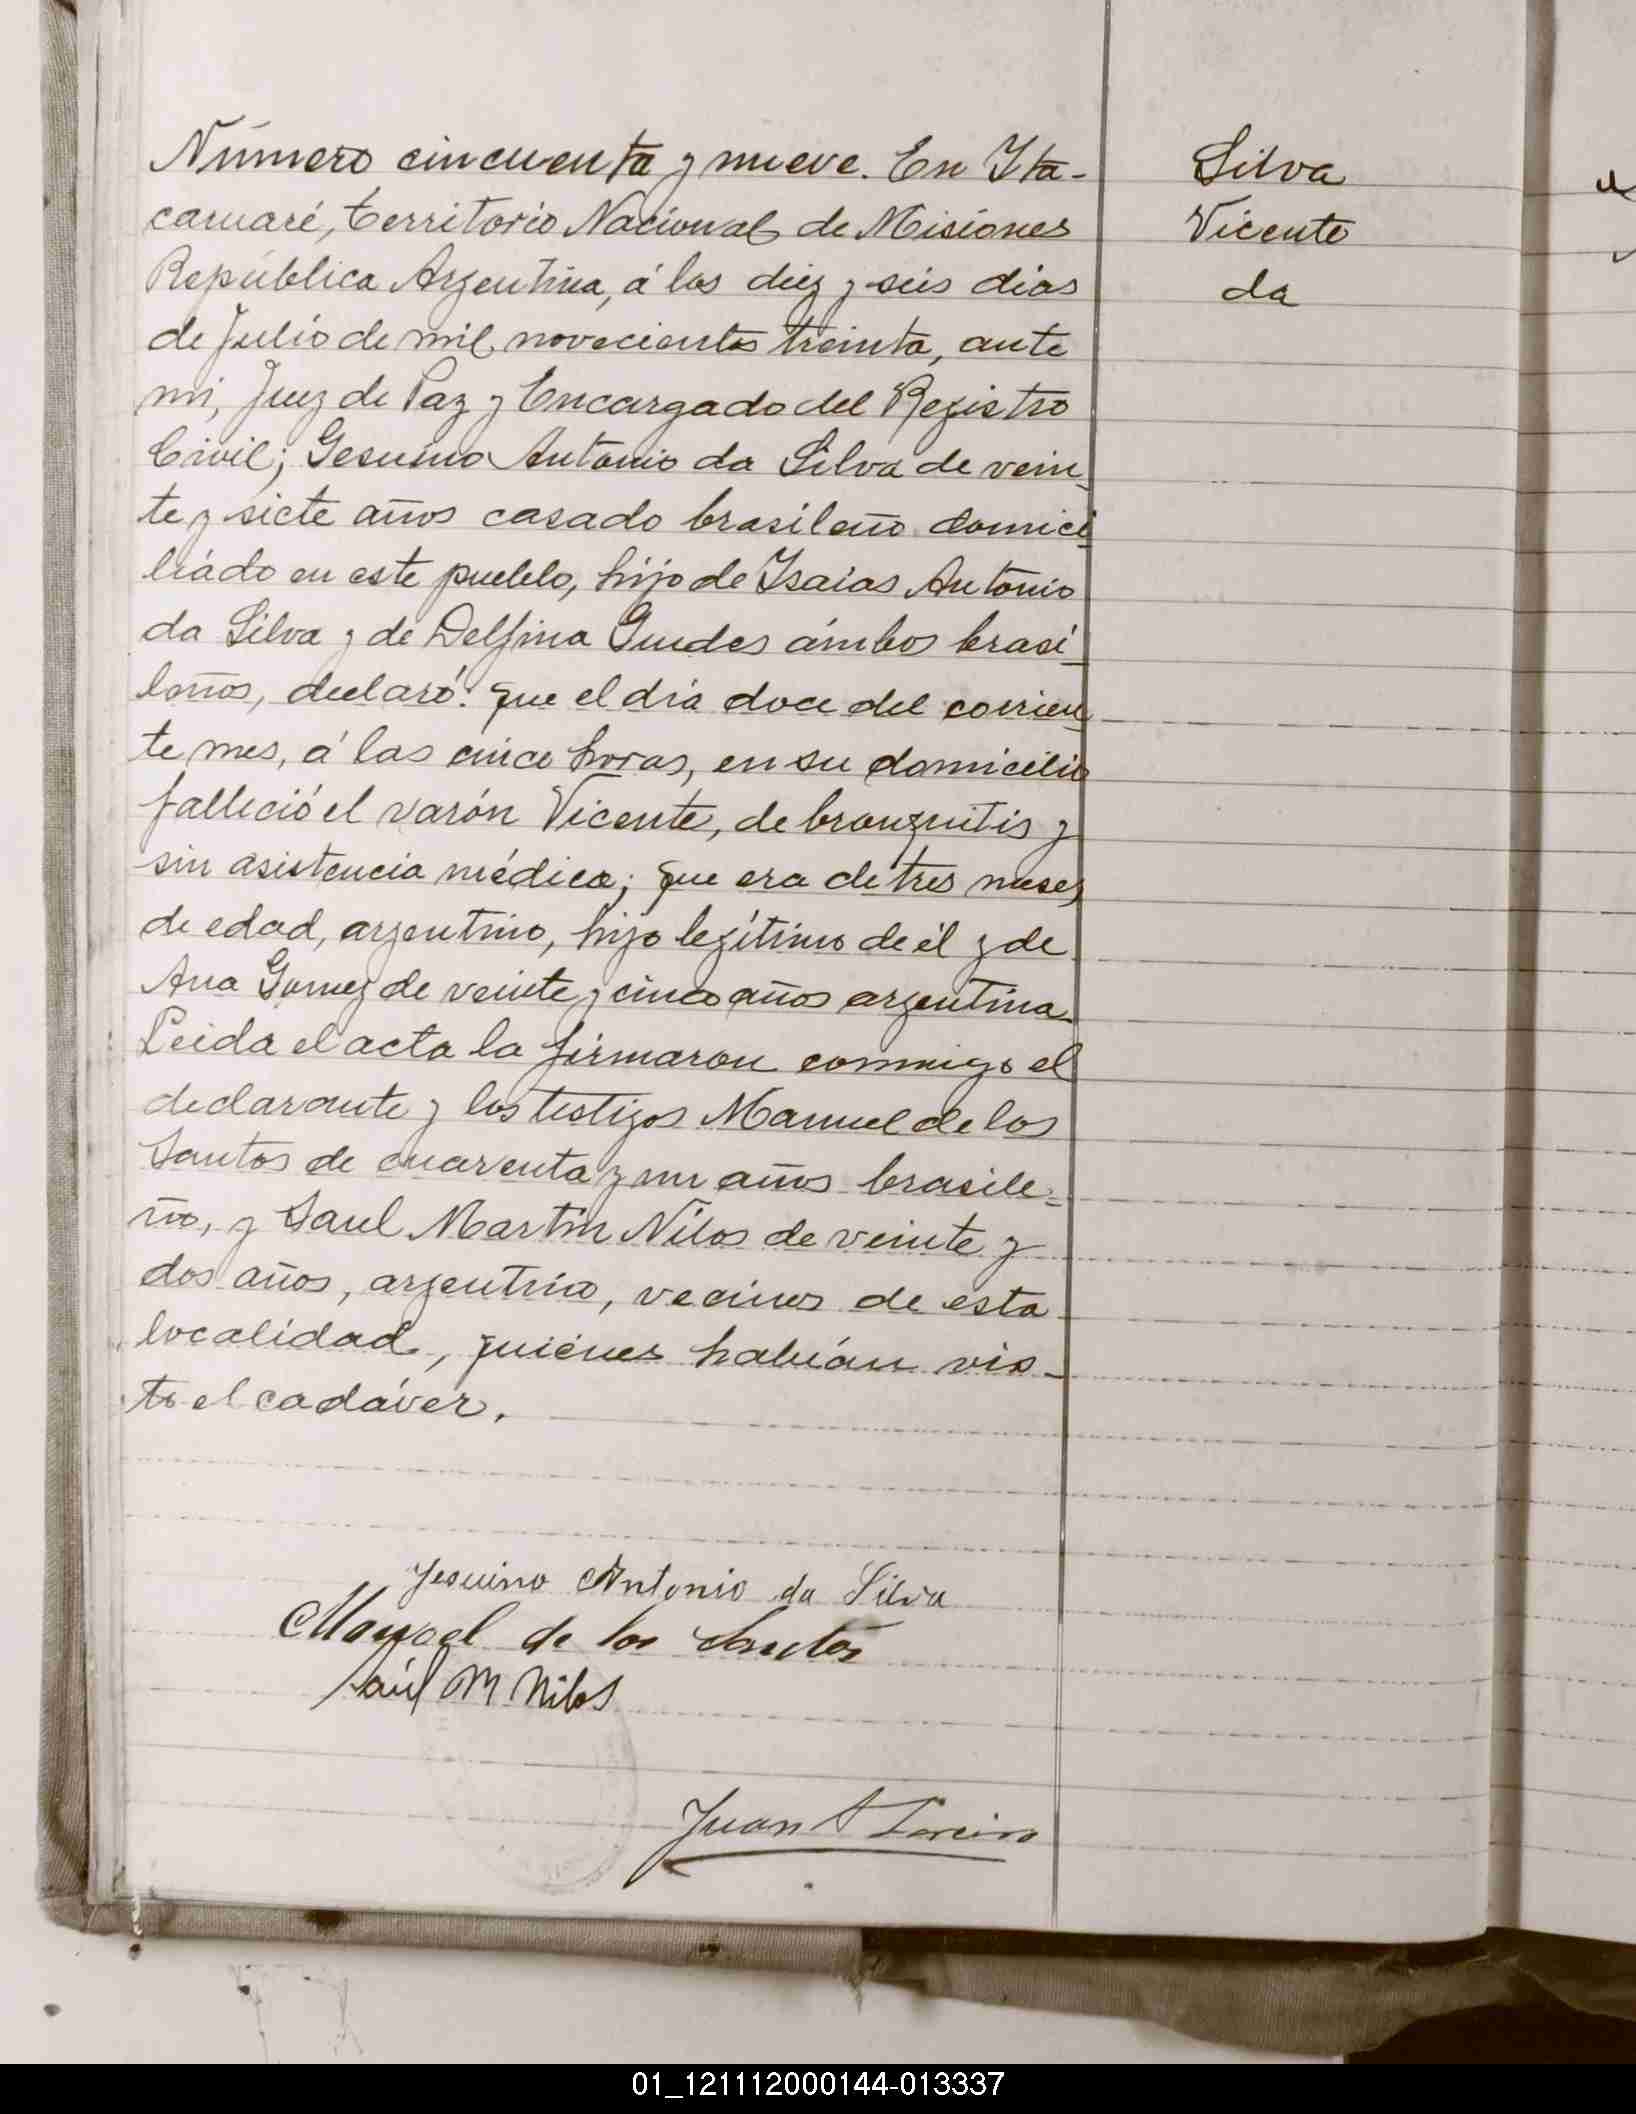 Número cincuenta y nueve. En Ita-
caruaré, territorio Nacional de Misiones
República Argentina, á los diez y seis dias
de Julio de mil novecientos treinta, ante
mi, Juez de Paz y Encargado del Registro
Civil; Gesuino Antonio da Silva de vein_
te y siete años casado brasileño domici_
liádo en este pueblo, hijo de Isaias Antonio
da Silva y de Delfina Guedes ámbos brasi_
leños, declaró: que el día doce del corrien_
te mes, á las cinco horas, en su domicilio
falleció el varón Vicente, de bronquitis y
sin asistencia médica; que era de tres meses
de edad, argentino, hijo legítimo de él y de
Ana Gomez de veinte y cinco años argentina.
Leida el acta la firmaron conmigo el
declarante y los testigos Manuel de los
Santos de cuarenta y un años brasile=
ño, y Saul Martin Nilos de veinte y
dos años, argentino, vecinos de esta
localidad, quiénes habían vis_
to el cadáver.
Silva
Vicente
da
Jesuino Antonio da Silva
Manoel de los Santos
Saúl M. Nilos
Juan A
01_121112000144-013337